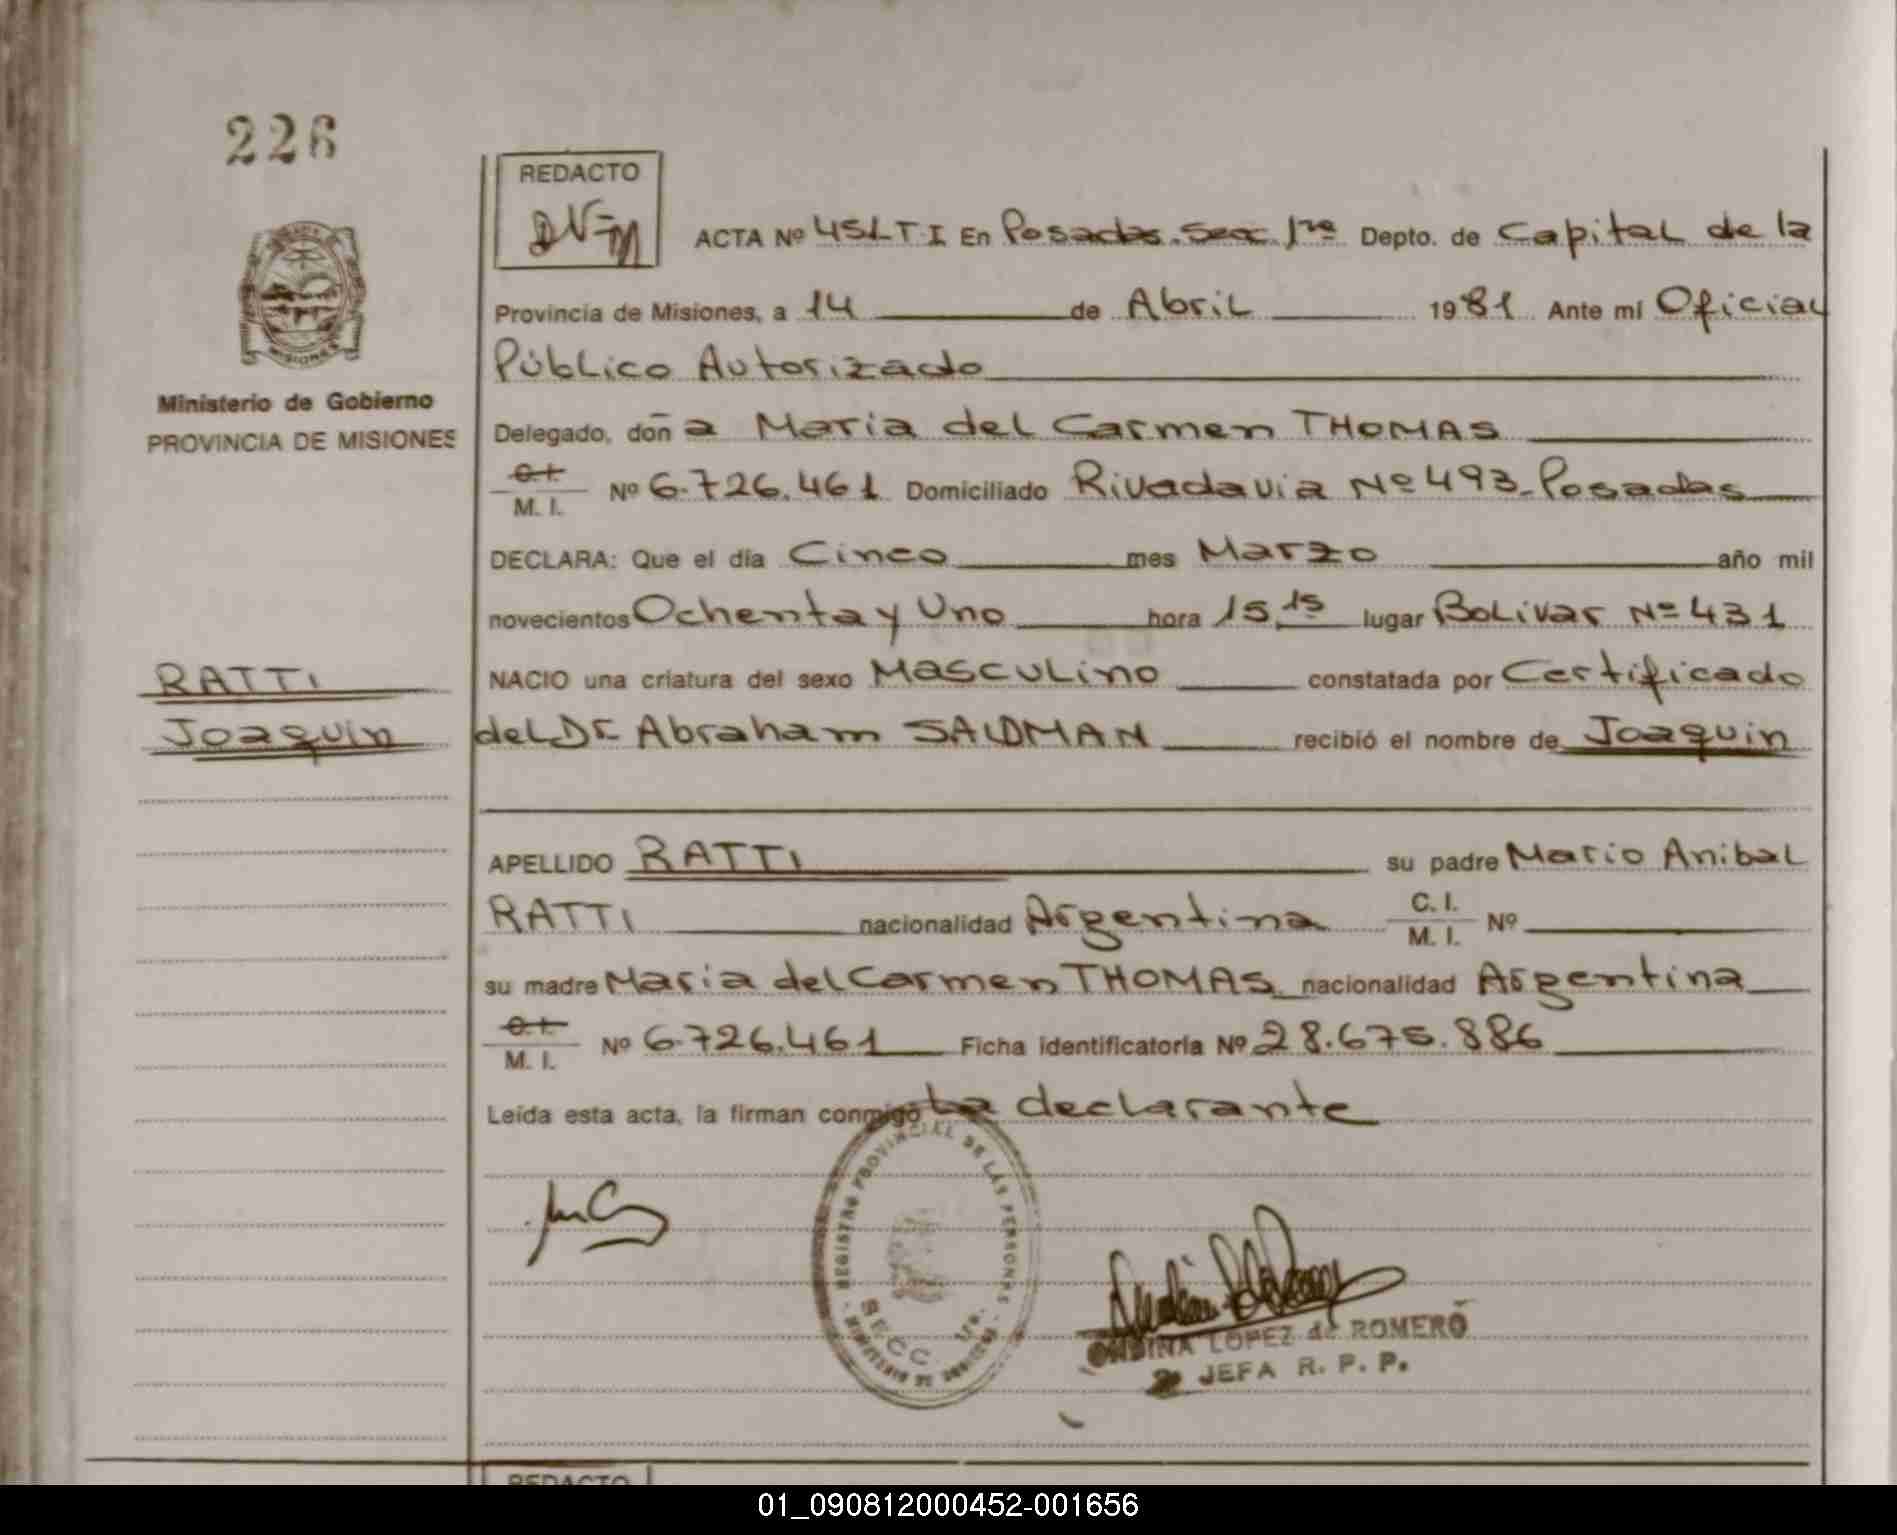 226
REDACTO
ACTA Nº 451 T I En Posadas. Secc. 1ra Depto. de Capital de la
MISIONES
Provincia de Misiones, a 14 de Abril 1981 Ante mí Oficial
Público Autorizado
Ministerio de Gobierno
PROVINCIA DE MISIONES
Delegado, doña María del Carmen THOMAS
C.I.
M. I. Nº 6.726.461 Domiciliado Rivadavia Nº 493-Posadas
DECLARA: Que el día Cinco mes Marzo año mil
novecientos Ochenta y Uno hora 15,15 lugar Bolivar Nº 431
RATTI
NACIO una criatura del sexo Masculino constatada por Certificado
Joaquín
del Dr Abraham recibió el nombre de Joaquín
APELLIDO RATTI su padre Mario Anibal
RATTI nacionalidad Argentina C. I.
M. I. Nº
su madre María del Carmen THOMAS nacionalidad Argentina
C.I.
M. I. Nº 6.726.461 Ficha identificatoria Nº 28.675.886
Leída esta acta, la firman conmigo La declarante
REGISTRO PROVINCIAL DE LAS PERSONAS
SECC 1ra.
ONDINA LOPEZ de ROMERO
JEFA R. P. P.
REDACTO
01_090812000452-001656